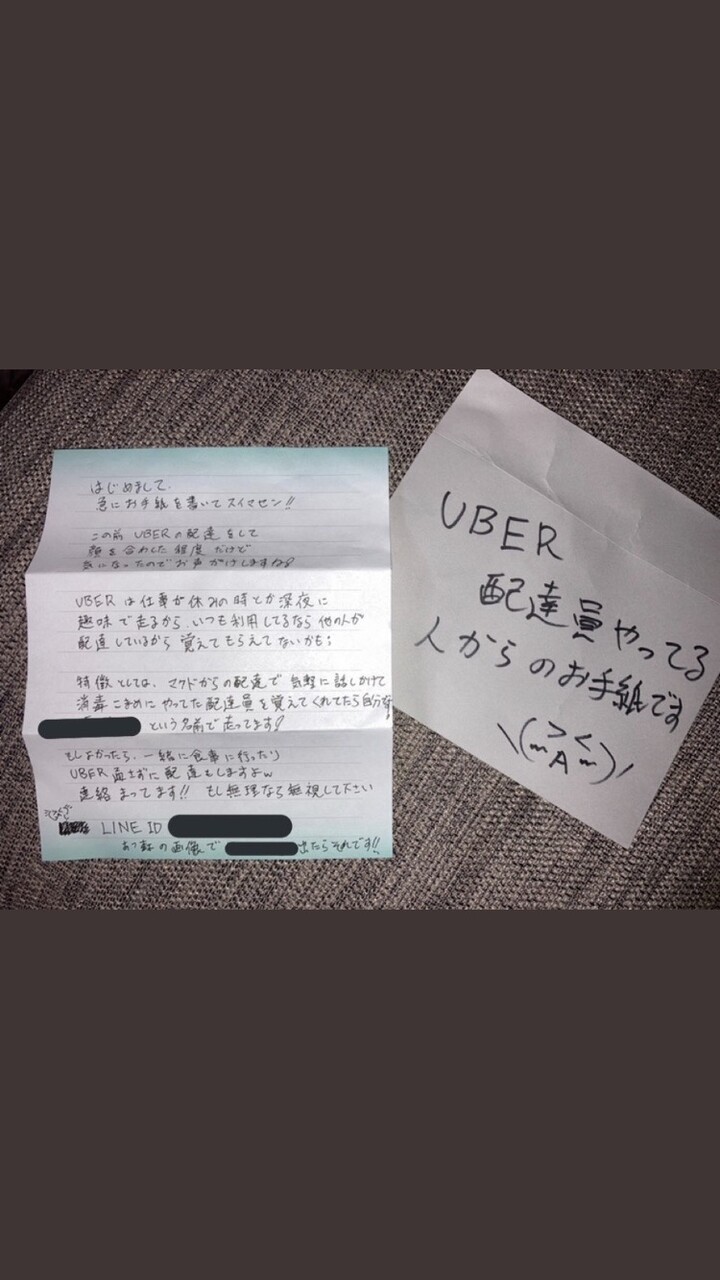 はじめまして、
急にお手紙を書いてスイマセン!!
この前 UBERの配達をして
顔を合わした程度だけど
気になったのでお声がけしますね♪
UBERは仕事が休みの時とか深夜に
趣味で走るから、いつも利用してるなら他の人が
配達しているから 覚えてもらえてないかも;
特徴としては、マクドからの配達で 気軽に話しかけて
消毒こまめにやった配達員を覚えてくれてたら自分です
という名前で走ってます♪
もしよかったら、一緒に食事に行ったり
UBER 配達もしますよw
連絡 まってます!! もし無理なら無視して下さい
LINE ID
の画像で 出たらそれです!!
UBER
配達員やってる
人からのお手紙です